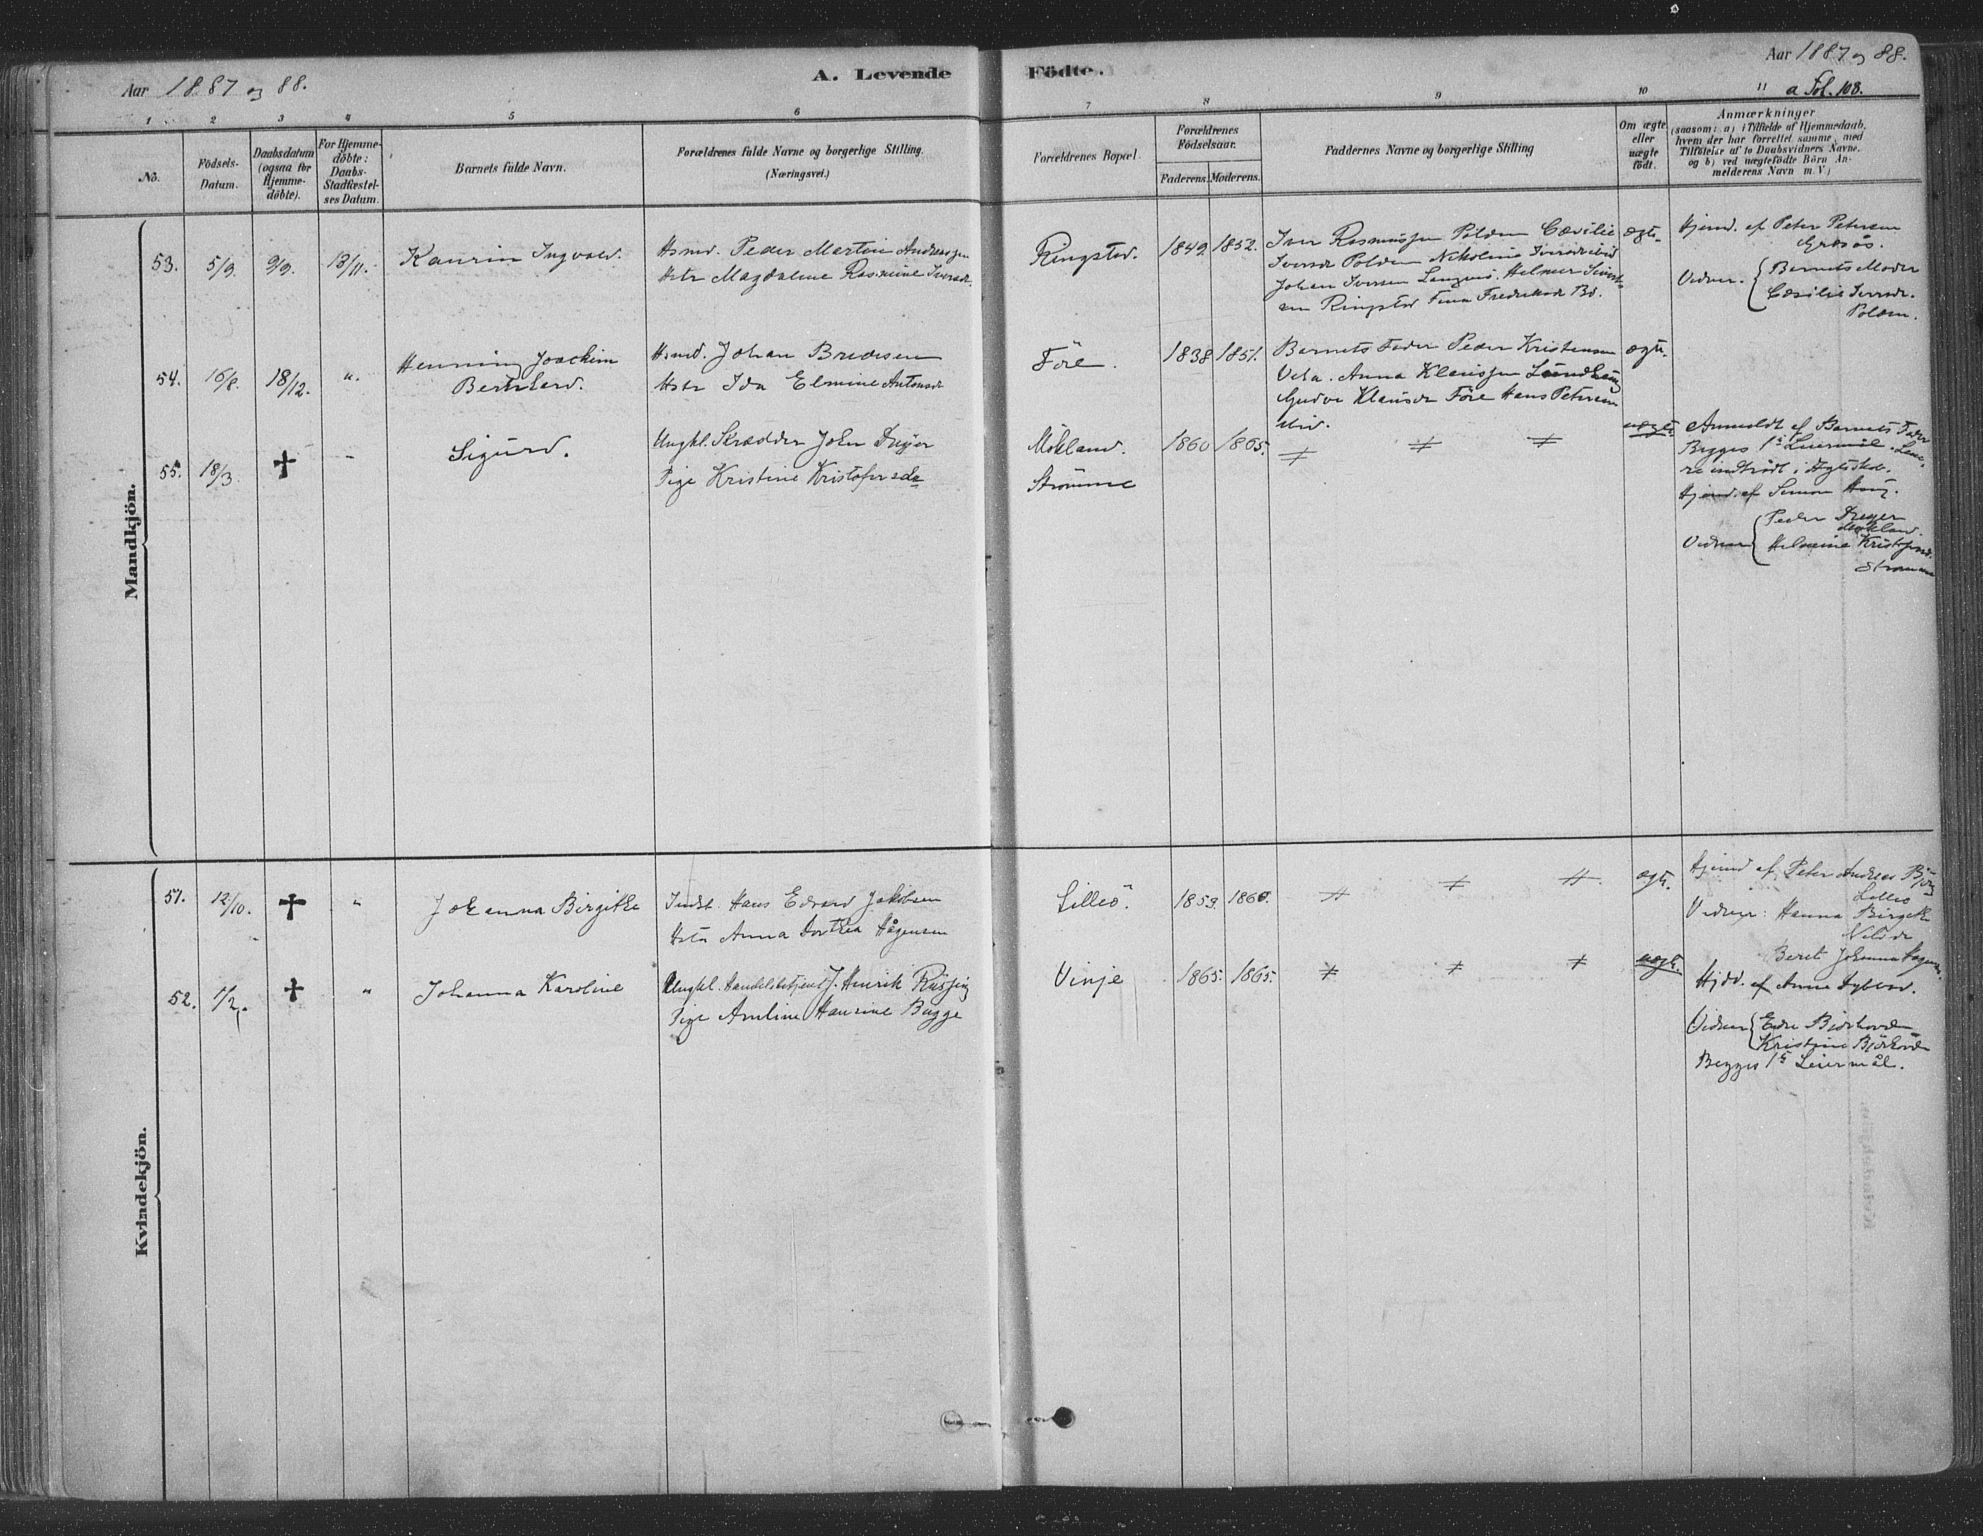 Aar 1887 og 88.
A. Levende Födte.
Aar 1887 og 88.
a Fol. 108.
1 2 3 4 5 6 7 8 9 10 11
No.
Födsels-
Datum.
Daabsdatum
(ogsaa for
Hjemme-
döbte).
For Hjemme-
döbte:
Daabs-
Stadfæstel-
ses Datum.
Barnets fulde Navn.
Forældrenes fulde Navne og borgerlige Stilling.
(Næringsvei.)
Forældrenes Bopæl.
Forældrenes
Födselsaar.
Faderens. Moderens.
Faddernes Navne og borgerlige Stilling
Om ægte
eller
uægte
födt.
Anmærkninger
(saasom: a) i Tilfælde af Hjemmedaab,
hvem der har forrettet samme, med
Tilföielse af to Daabsvidners Navne.
og b) ved uægtefödte Börn An-
melderens Navn m. V.)
Mandkjön.
53. 5/9. 9/9. 13/11.
Kaurin Ingvald.
Hsmd. Peder Martin Andreassen
Hstr Magdalene Rasmine Iversdr.
Ringstad. 1849 1852.
Iver Rasmussen Polden Cæcilie
Iversdr Polden Nikoline Iversdr ibid
Johan Iversen Langenes Helmer Sivert-
sen Ringstad Fina Frederiksdr Bö.
ægte.
Hjemd. af Peter Petersen
Grasös.
Vidner. Barnets Moder
Cæsilie Iversdr.
Polden.
54. 16/8. 18/12. "
Henning Joachim
Bernhard.
Hsmd. Johan Bredesen
Hstr Ida Elmine Antonsdr
Före. 1838 1851.
Barnets Fader Peder Kristensen
Anna Klausen
Gurve Klausdr Före Hans Petersen
ægte.
55. 18/3. ✝ "
Sigurd.
Ungkl. Skrædder Johan Dreyer
Pige Kristine Kristofersdr
Mökland. 1860 1865.
Strömme
≠ ≠ ≠
uægte.
Anmeldt af Barnets Fader
Begges 1s Leiermål. Læ-
re indtrådt i Ægtested.
Hjemd. af Simon Haug.
Vidner Peder Dreyer
Mökland.
Helmine Kristofersd.
Strömme
Kvindekjön.
51. 12/10. ✝ "
Johanna Birgithe
Indst. Hans Edvard Jakobsen
Hstr Anna Dorthea Hågensen
Lilleö. 1859. 1860.
≠ ≠ ≠
ægte.
Hjemd af Peter Andreas
Lilleö
Vidner: Hanna Birgithe
Nilsdr
Beret Johanna Hagensen.
52. 1/2. ✝ "
Johanna Karoline
Ungkl. Handelsbetjent J. Henrik Rüssing
Pige Amline Hansine Bugge
Vinje 1865. 1865.
≠ ≠ ≠
uægte.
Hjdd. af Anne Dybvad.
Vidner Edre Björhovde
Kristine Björhovde
Begges 1s Leiermål.